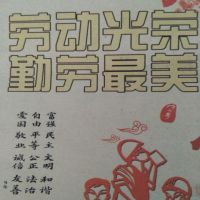 劳动光荣
勤劳最美
富强 民主 文明 和谐
自由 平等 公正 法治
爱国 敬业 诚信 友善